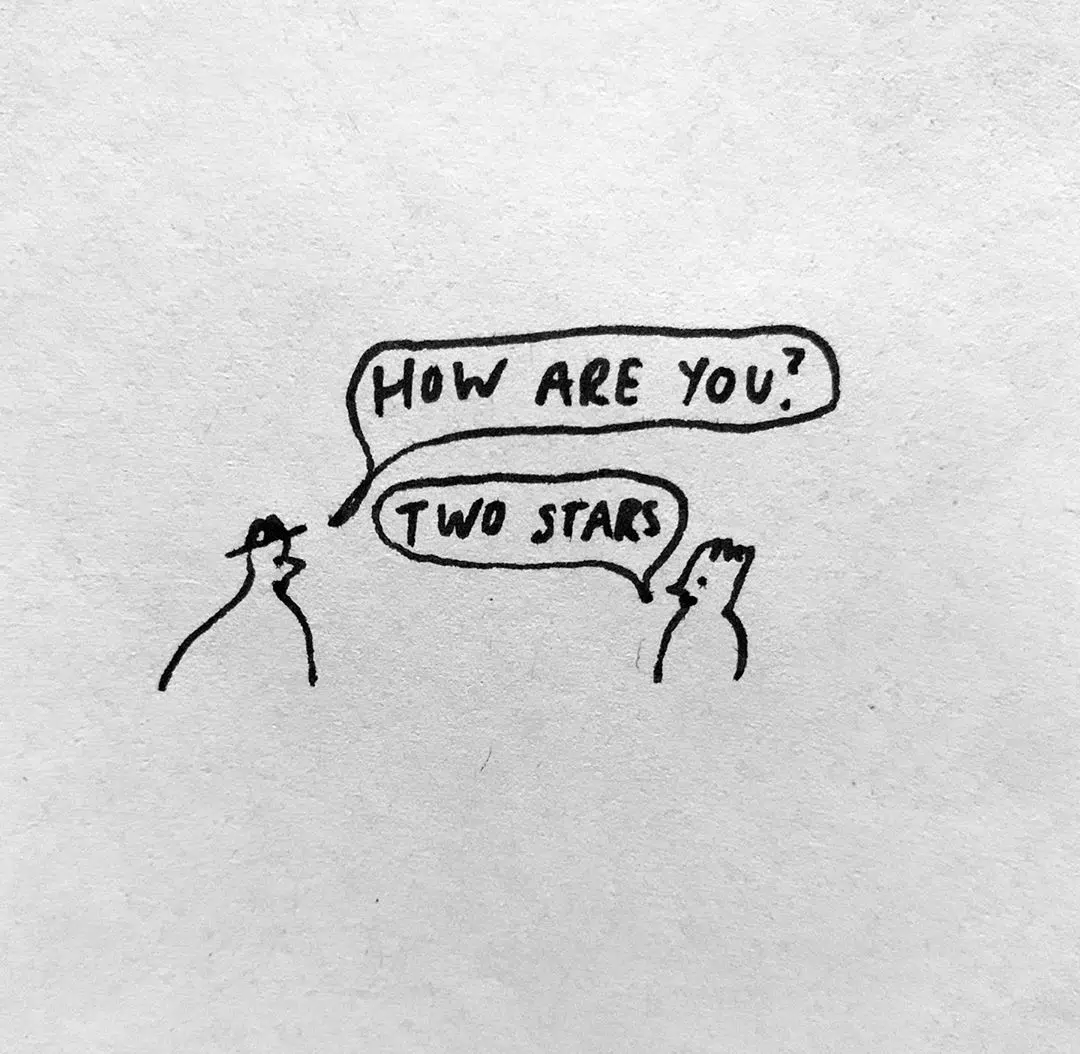 HOW ARE YOU?
TWO STARS